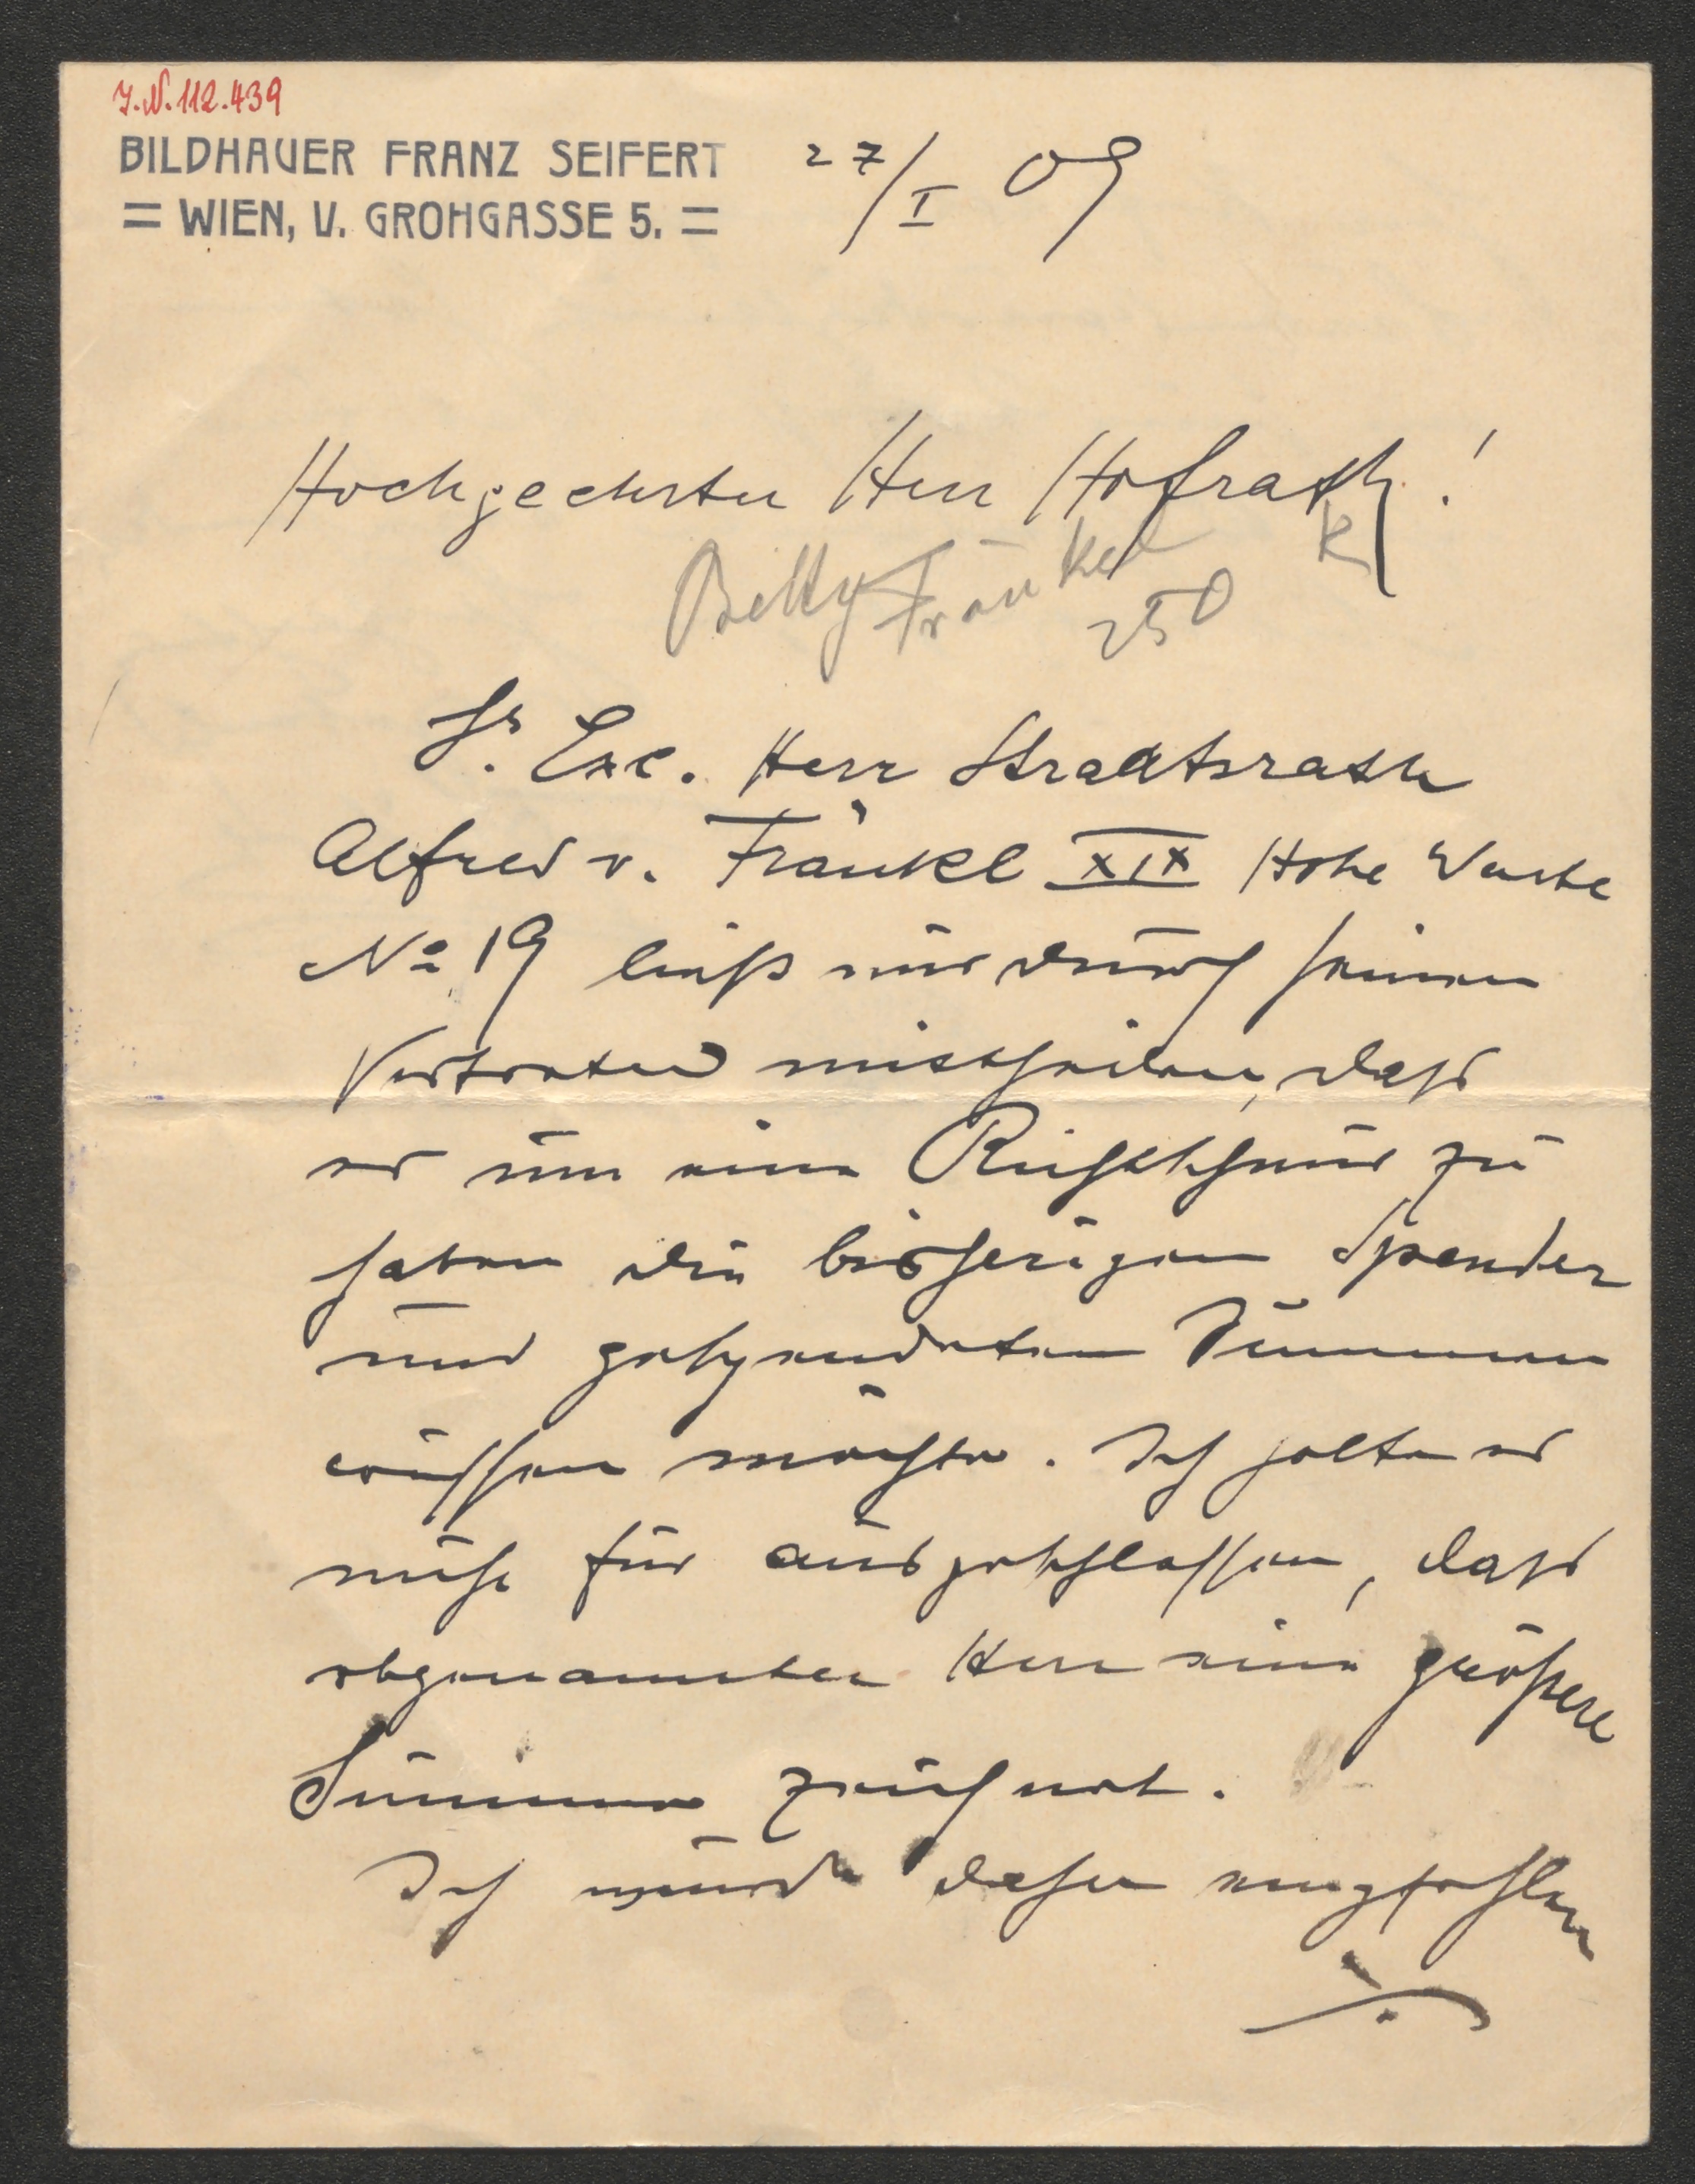 J.N. 112.439
BILDHAUER FRANZ SEIFERT
= WIEN, V. GROHGASSE 5. =
27/I 09
Hochgeehrter Herr Hofrath!
Betty Fränkel K
250
Sr. Exc. Herr Staatsrath
Alfred v. Fränkl XIX Hohe Warte
No 19 ließ mir durch seinen
Vertreter mittheilen, dass
er um eine Richtschnur zu
haben die bisherigen Spender
und gespendeten Summen
wissen möchte. Ich halte es
nicht für ausgeschlossen, dass
obgenannter Herr eine größere
Summe zeichnet.
Ich würde daher empfehlen